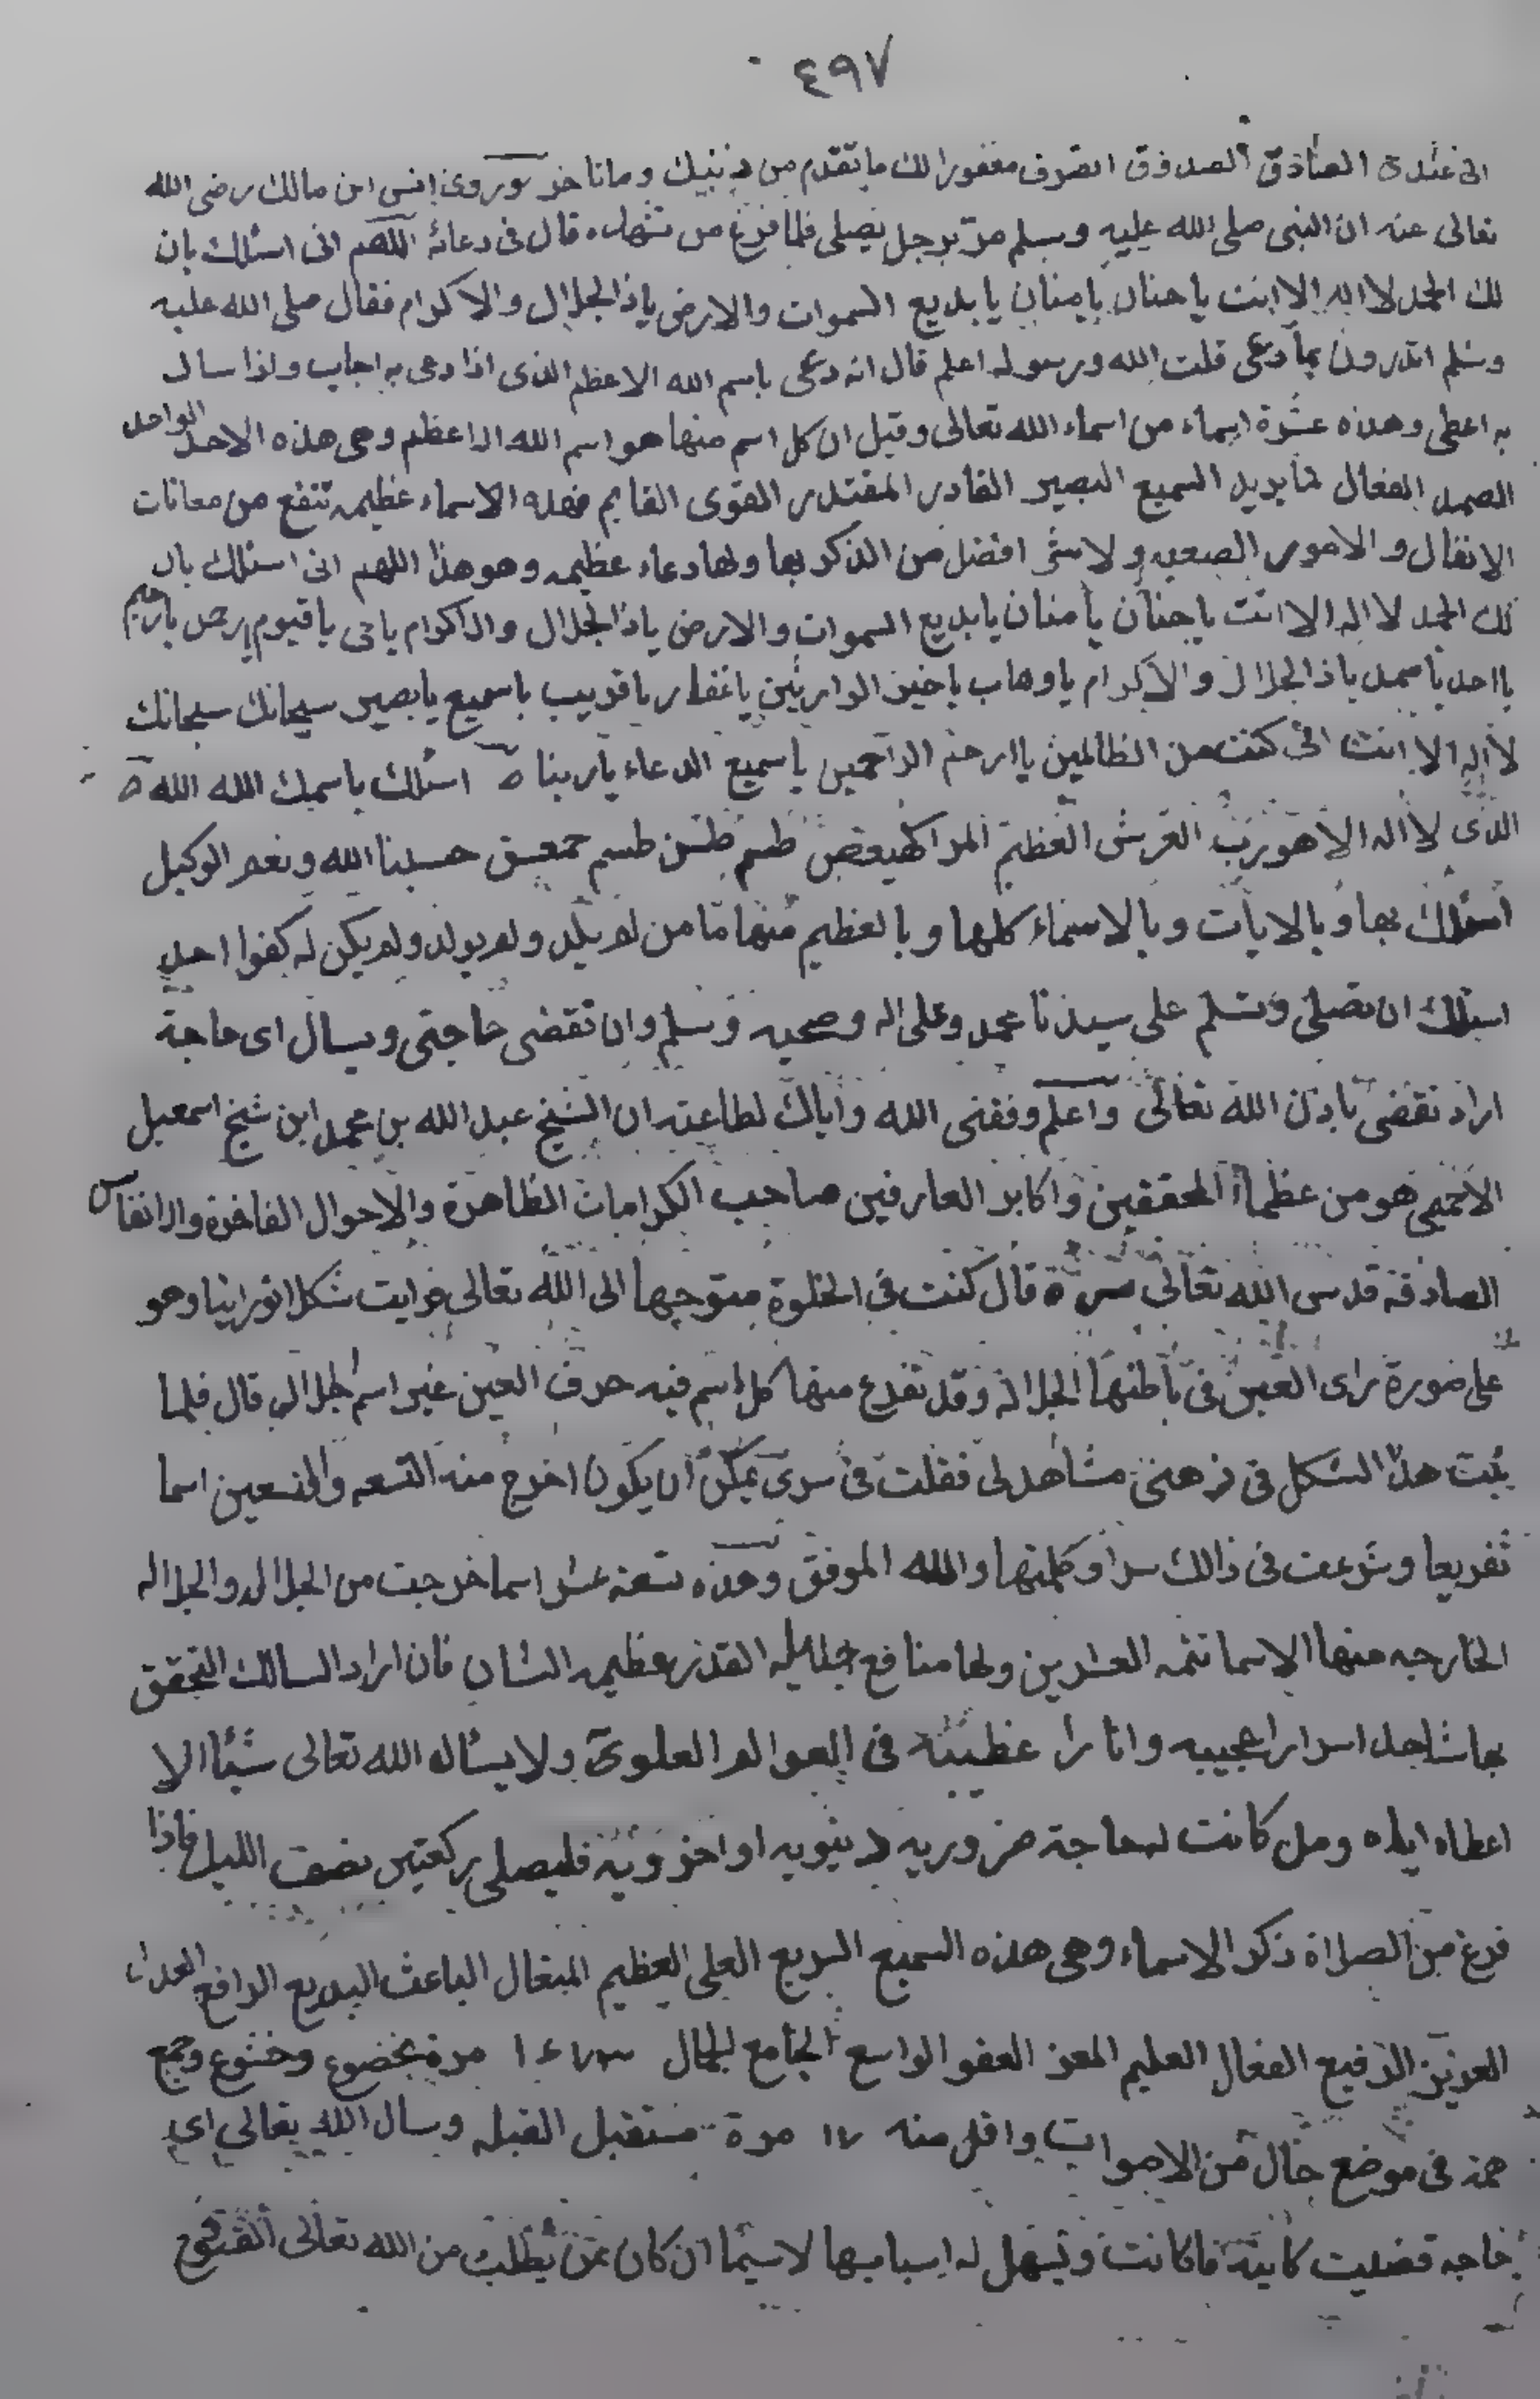 ٤٩٧
الصادق الصدوق انصرف مغفورا لك ما تقدم من ذنبك وما تاخر وروى انس ابن مالك رضى الله
تعالى عنه ان النبى صلى الله عليه وسلم مر برجل يصلى فلما فرغ من تشهده قال فى دعائه اللهم انى اسئلك بان
لك الحمد لا اله الا انت يا حنان يا منان يا بديع السموات والارض ياذا الجلال والاكرام فقال صلى الله عليه
وسلم اتدرون بما دعى قلت الله ورسوله اعلم قال انه دعى باسم الله الاعظم الذى اذا دعى به اجاب واذا سال
به اعطى وهذه عشرة اسماء من اسماء الله تعالى وقيل ان كل اسم منها هو اسم الله الاعظم وهى هذه الاحد الواحد
الصمد الفعال لما يريد السميع البصير القادر المقتدر القوى القايم فهذه الاسماء عظيمه تنفع من معانات
الانفال والامور الصعبه ولا شئ افضل من الذكر بها ولها دعاء عظيمه وهو هذا اللهم انى اسئلك بان
لك الحمد لا اله الا انت يا حنان يا منان يا بديع السموات والارض ياذا الجلال والاكرام يا حى يا قيوم يا رحمن يا رحيم
يا احد يا صمد ياذا الجلال والاكرام يا وهاب يا خير الوارثين يا غفار يا قريب يا سميع يا بصير سبحانك سبحانك
لا اله الا انت انى كنت من الظالمين يا ارحم الراحمين يا سميع الدعاء يا ربنا اسئلك باسمك الله الله
الذى لا اله الا هو رب العرش العظيم المر كهيعص طسم طس طسم حمعسق حسبنا الله ونعم الوكيل
اسئلك بها وبالايات وبالاسماء كلها وبالعظيم منها يا من لم يلد ولم يولد ولم يكن له كفوا احد
اسئلك ان تصلى وتسلم على سيدنا محمد وعلى اله وصحبه وسلم وان تقضى حاجتى ويسال اى حاجة
اراد تقضى باذن الله تعالى واعلم وفقنى الله واياك لطاعته ان الشيخ عبد الله بن محمد ابن شيخ اسمعيل
الاخميمى هو من عظماء المحققين واكابر العارفين صاحب الكرامات الظاهرة والاحوال الفاخرة والانفاس
الصادقه قدس الله تعالى سره قال كنت فى الخلوة متوجها الى الله تعالى فرايت شكلا نورانيا وهو
على صورة راى العين فى باطنها الجلاله وقد تفرع منها كل اسم فيه حرف العين غير اسم الجلاله قال فلما
ثبت هذا الشكل فى ذهنى مشاهد لى فقلت فى سرى يمكن ان يكون اخرج منه التسعه والتسعين اسما
تفريعا وشرعت فى ذالك سرا وكلمتها والله الموفق وهذه تسعة عشر اسما خرجت من الجلاله والجلاله
الخارجه منها الاسما تتمه العشرين ولها منافع جليله القدر عظيمه الشان فان اراد السالك التحقق
بها شاهد اسرارا عجيبه واثارا عظيمه فى العوالم العلوى ولا يسئاله الله تعالى شيئا الا
اعطاه اياه ومن كانت له حاجة ضروريه دنيويه او اخرويه فليصلى ركعتين نصف الليل فاذا
فرغ من الصلاة ذكر الاسماء وهى هذه السميع السريع العلى العظيم المتعال الباعث البديع الرافع العدل
العزيز الرفيع الفعال العليم المعز العفو الواسع الجامع مرة بخضوع وخشوع وجمع
همه فى موضع خال من الاصوات واقل منه ١٧ مرة مستقبل القبله وسال الله تعالى اى
حاجه قضيت كاينه ما كانت وتسهل له اسبابها لاسيما ان كان ممن يطلب من الله تعالى الفتوح